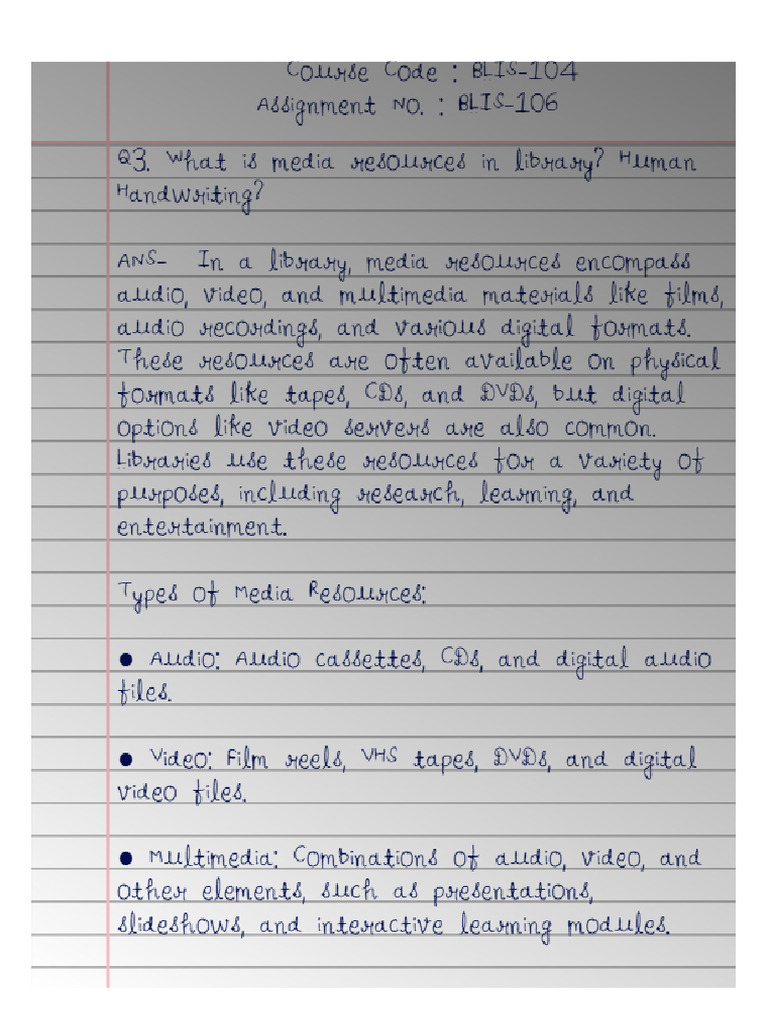 Course Code : BLIS-104
Assignment No. : BLIS-106
Q3. What is media resources in library? Human
Handwriting?
ANS- In a library, media resources encompass
audio, video, and multimedia materials like films,
audio recordings, and various digital formats.
These resources are often available on physical
formats like tapes, CDs, and DVDs, but digital
options like video servers are also common.
Libraries use these resources for a variety of
purposes, including research, learning, and
entertainment.
Types of Media Resources:
● Audio: Audio cassettes, CDs, and digital audio
files.
● Video: Film reels, VHS tapes, DVDs, and digital
video files.
● Multimedia: Combinations of audio, video, and
other elements, such as presentations,
slideshows, and interactive learning modules.